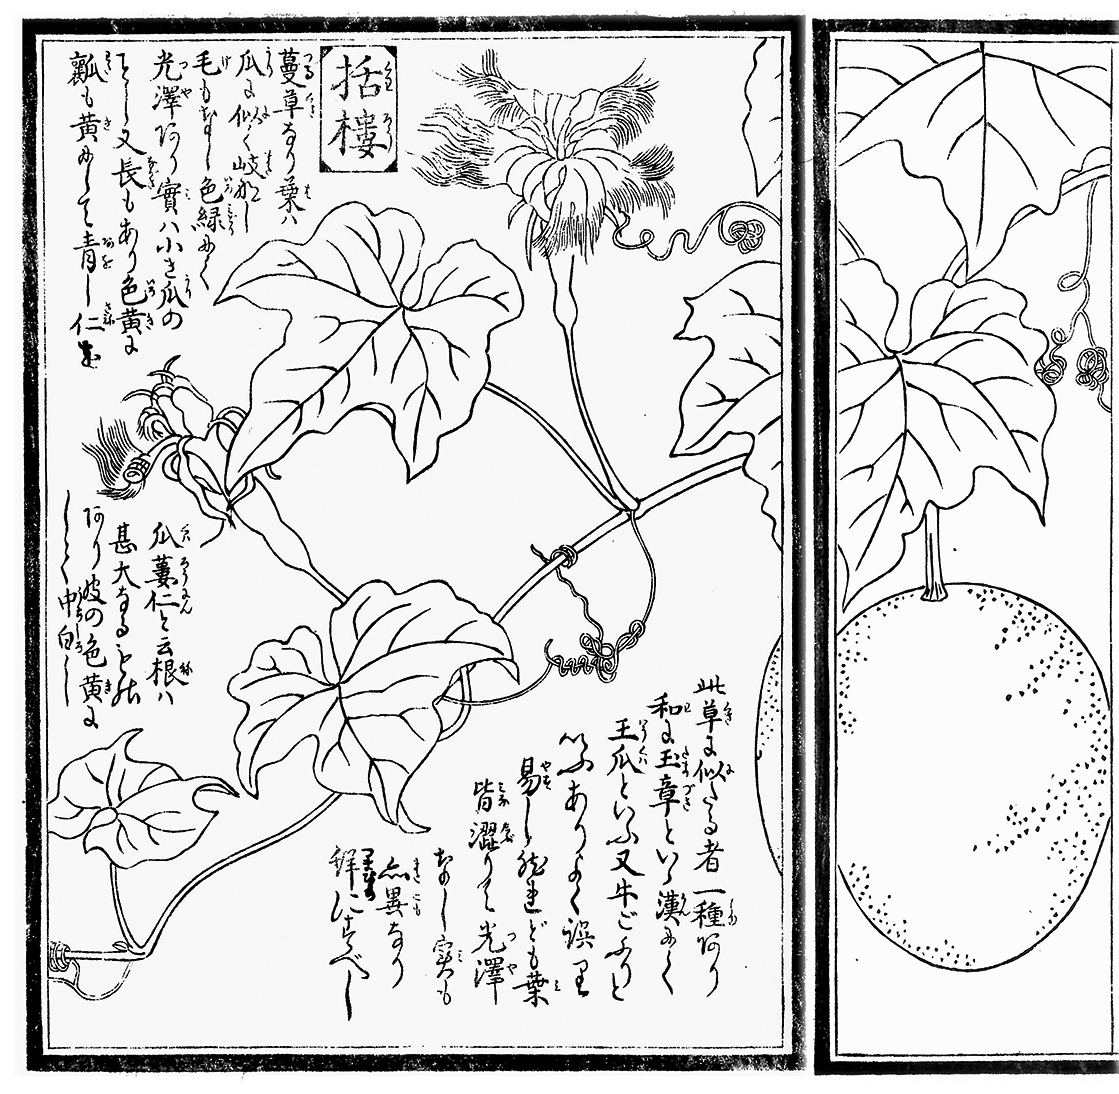 括樓
蔓草なり葉ハ
瓜に似て岐
毛もなし色緑
光澤あり實ハ小き瓜の
ことし又長もあり色黄に
瓤も黄にして青し仁を
瓜蔞仁と云根ハ
甚大なる
あり皮の色黄に
して中白し
此草に似たる者一種あり
和に玉章といふ漢にて
王瓜といふ又牛ごふりと
いふありよく誤り
易し然れども葉
皆澀りて光澤
なし実も
異なり
にすべし